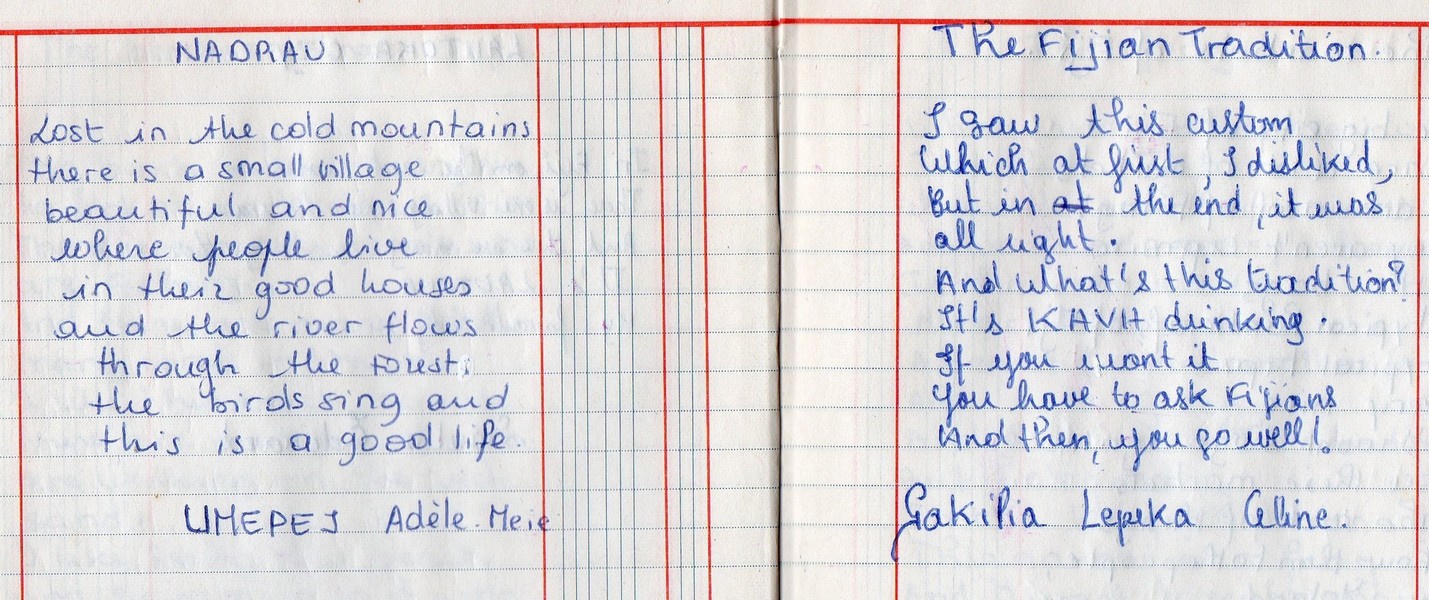 NADRAU
Lost in the cold mountains
there is a small village
beautiful and nice
where people live
in their good houses
and the river flows
through the forest;
the birds sing and
this is a good life
UMEPEJ Adèle. Meie
The Fijian Tradition.
I saw this custom
Which at first, I disliked,
But in at the end, it was
all right.
And What's this tradition?
It's KAVA drinking.
If you want it
You have to ask Fijians
And then, you go well!
Gakilia Lepeka Celine.